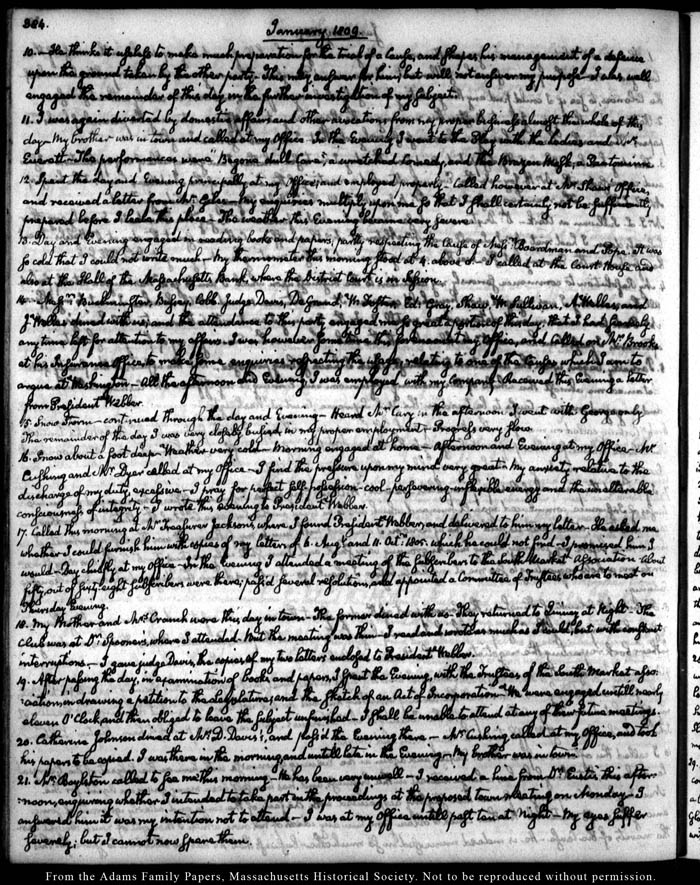 384.
January 1809.
10. — He thinks it useless to make much preparation for the trial of a Cause, and shapes his management of a defence
upon the ground taken by the other party. This may answer for him; but will not answer my purpose — I was well
engaged the remainder of this day in the further investigation of my subject.
11. I was again diverted by domestic affairs and other avocations from my proper business almost the whole of this
day — My brother was in town and called at my Office — In the Evening I went to the Play with the Ladies and Mr.
Everett — The performances were Begone dull Care; a wretched Comedy, and the Brazen Mask, a Pantomime
12. Spent the day and Evening principally at my Office; and employed properly — Called however at Mr. Shaw's Office,
and received a letter from Mr. — My enquiries multiply upon me so that I shall certainly not be sufficiently
prepared before I leave this place — The weather this Evening became very severe.
13. Day and Evening engaged in reading books and papers, partly respecting the Cause of Messrs. Boardman and Pope. It was
so cold that I could not write much — My thermometer this morning stood at 4. above 0 — I called at the Court House and
also at the Hall of the Massachusetts Bank, where the District Court is in Session.
14. Messrs. Buckminster, Bussey, Cobb. Judge Davis, DeGrand, Gray, Shaw, W. Sullivan, and
J. dined with us; and the attendance to this party engaged me so great a portion of this day, that I had scarcely
any time left for attention to my affairs. I was however some time this forenoon at my Office, and called on Mr. Brooks
at his Insurance Office, to make some enquiries respecting the usage, relating to one of the Causes which I am to
argue at Washington — All the afternoon and Evening I was employed with my company. Received this Evening a letter
from President Webber.
15. Snow Storm — continued through the day and Evening — Heard Mr. Cary in the afternoon. I went with George only
The remainder of the day I was very closely busied in my proper employment — Progress very slow.
16. Snow about a foot deep — Weather very cold — Morning engaged at home — Afternoon and Evening at my Office — Mr.
Cushing and Mr. Dyer called at my Office — I find the pressure upon my mind very great — My anxiety relative to the
discharge of my duty, excessive — I pray for perfect self-possession — cool — persevering inflexible energy and the unalterable
consciousness of integrity — I wrote this evening to President Webber.
17. Called this morning at Mr. Treasurer Jackson's, where I found President Webber, and delivered to him my letter — He asked me
whether I could furnish him with copies of my letters of 6. Augt. and 11. Octr. 1805. which he could not find — I promised him I
would — Day chiefly at my Office — In the evening I attended a meeting of the subscribers to the South Market Association — About
fifty, out of forty-eight subscribers were there; pass'd several resolutions, and appointed a Committee of Trustees who are to meet on
Thursday evening.
18. My Mother and Mrs. Cranch were this day in town — The former dined with us — They returned to Quincy at Night — The
Club was at Dr. Spooner's, where I attended. But the meeting was thin — I read and wrote as much as I could; but with constant
interruptions — I gave judge Davis, the copies of my two letters enclosed to President Webber.
19. After passing the day, in examination of books and papers, I spent the Evening, with the Trustees of the South Market asso-
ciation, in drawing a petition to the Legislature; and the sketch of an Act of Incorporation — We were engaged untill nearly
eleven O'Clock and then obliged to leave the subject unfinished — I shall be unable to attend at any of their future meetings.
20. Catherine Johnson dined at Mr. D. Davis's, and pass'd the Evening there — Mr. Cushing called at my Office, and took
his papers to be copied. I was there in the morning, and untill late in the Evening — My brother was in town.
21. Mr. Boylston called to see me this morning — He has been very unwell — I received a line from Dr. Eustis this after-
noon, enquiring whether I intended to take part in the proceedings at the proposed town-meeting on Monday — I
answered him it was my intention not to attend — I was at my Office untill past ten at Night — My eyes suffer
severely; but I cannot now spare them.
From the Adams Family Papers, Massachusetts Historical Society. Not to be reproduced without permission.